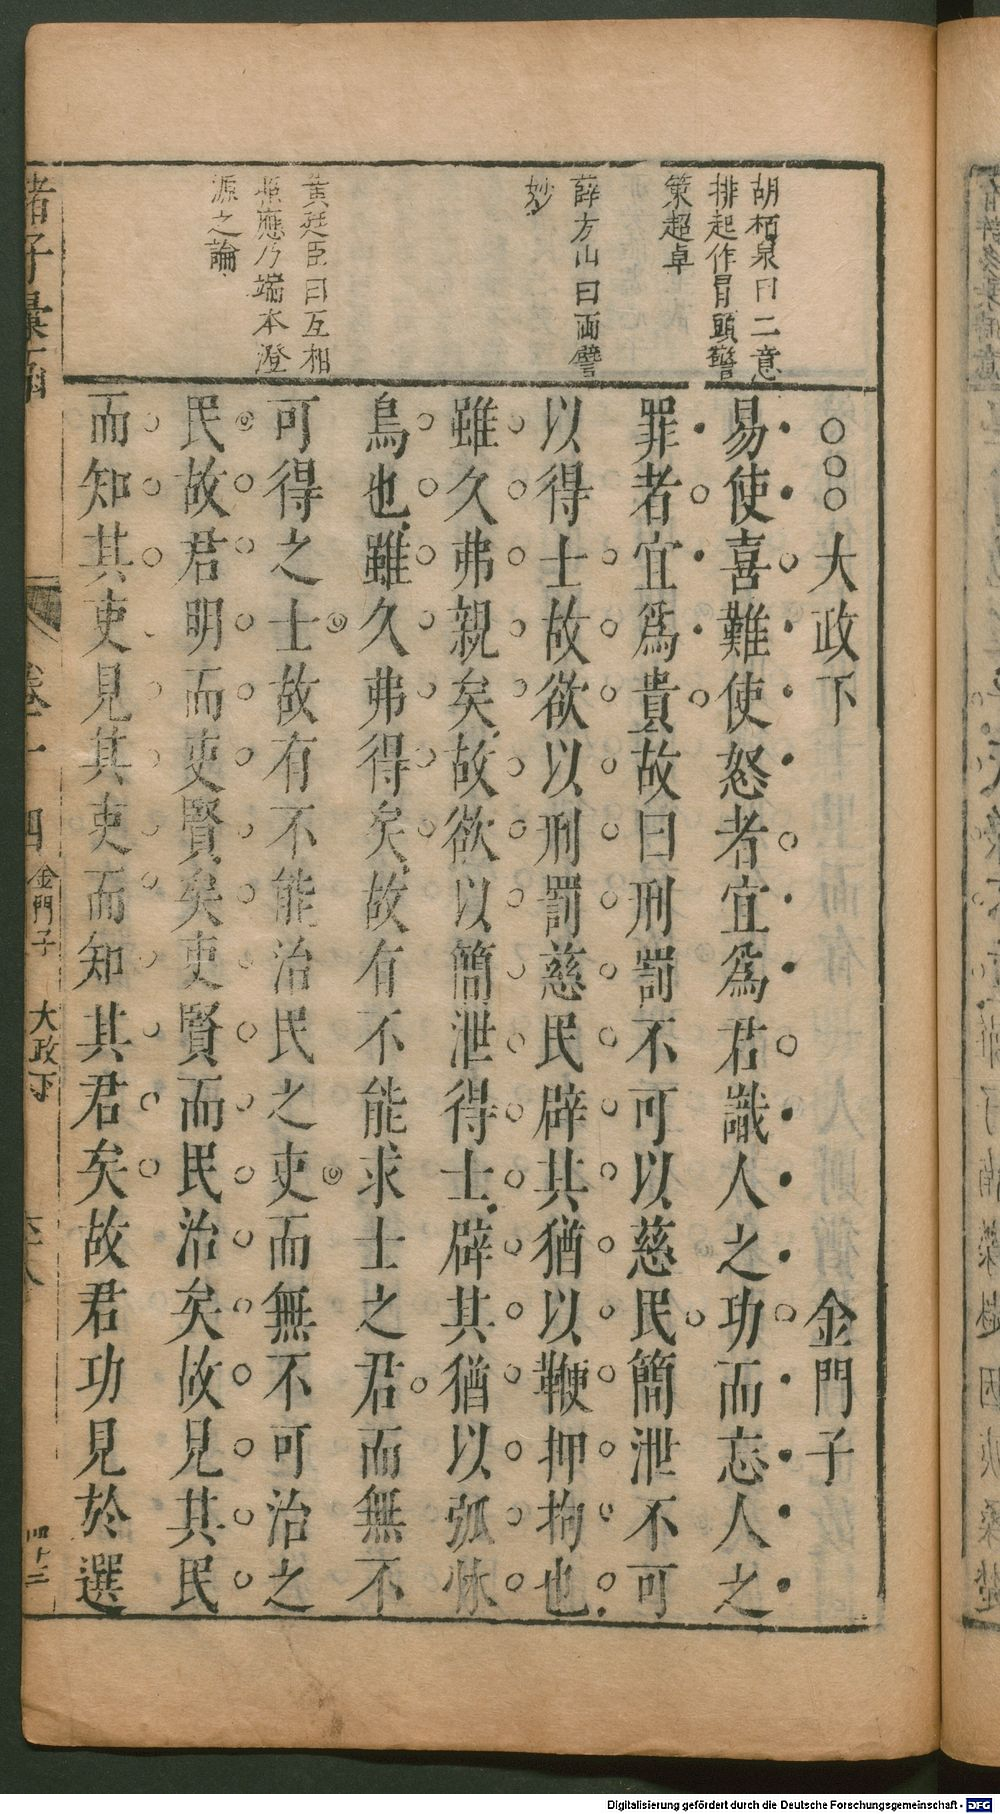 胡栢泉曰二意
排起作冒頭警
策超卓
薛方山曰兩譬
妙
黃廷臣曰互相
照應乃端本澄
源之論
○○○大政下 金門子
易使喜難使怒者宜爲君識人之功而忘人之
罪者宜爲貴故曰刑罰不可以慈民簡泄不可
以得士故欲以刑罰慈民辟其猶以鞭押狗也
雖久弗親矣故欲以簡泄得士辟其猶以弧怵
鳥也雖久弗得矣故有不能求士之君而無不
可得之士故有不能治民之吏而無不可治之
民故君明而吏賢矣吏賢而民治矣故見其民
而知其吏見其吏而知其君矣故君功見於選
諸子彙函 卷十四 金門子 大政下 四十三
Digitalisierung gefördert durch die Deutsche Forschungsgemeinschaft - DFG